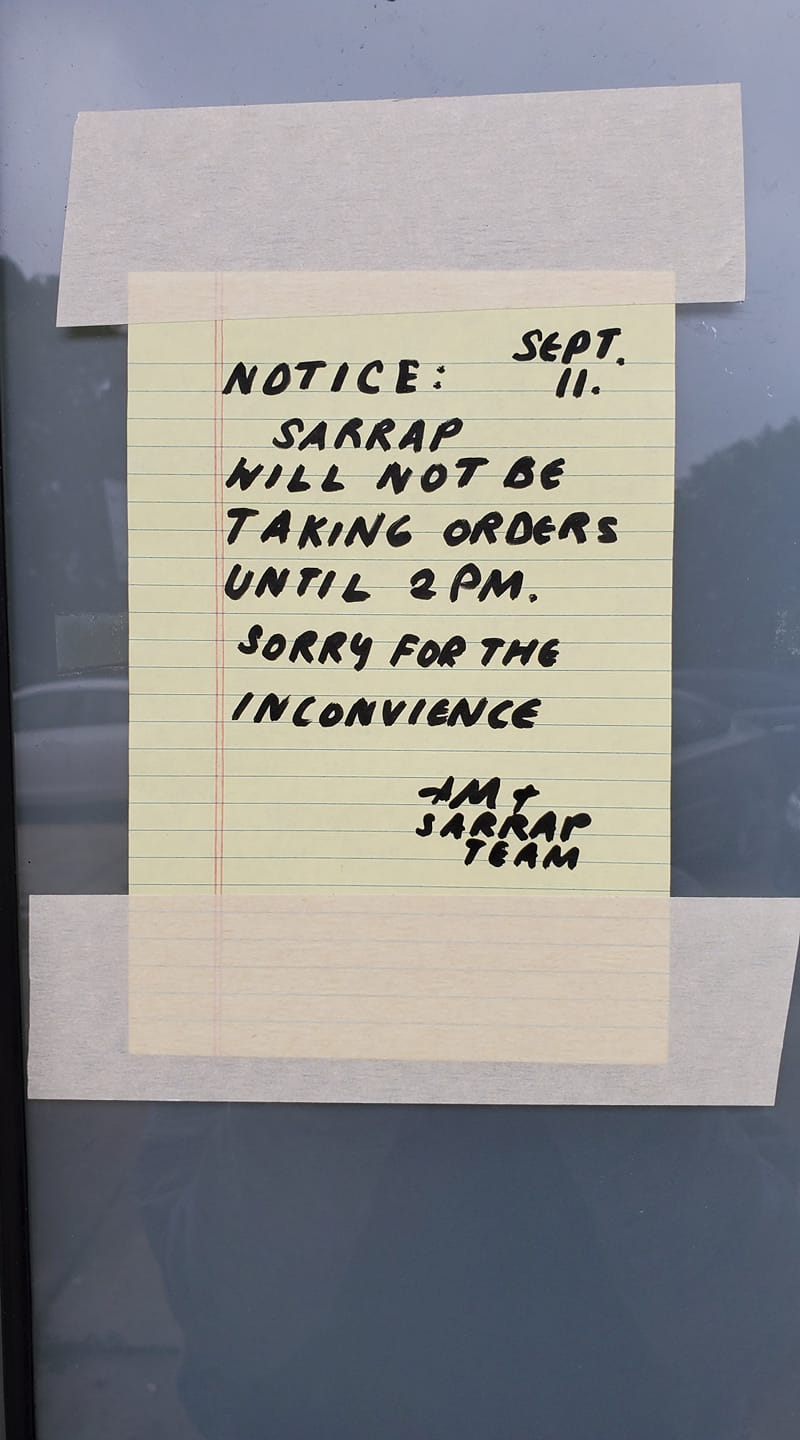 SEPT.
11.
NOTICE:
SARRAP
WILL NOT BE
TAKING ORDERS
UNTIL 2PM.
SORRY FOR THE
INCONVIENCE
AM +
SARRAP
TEAM